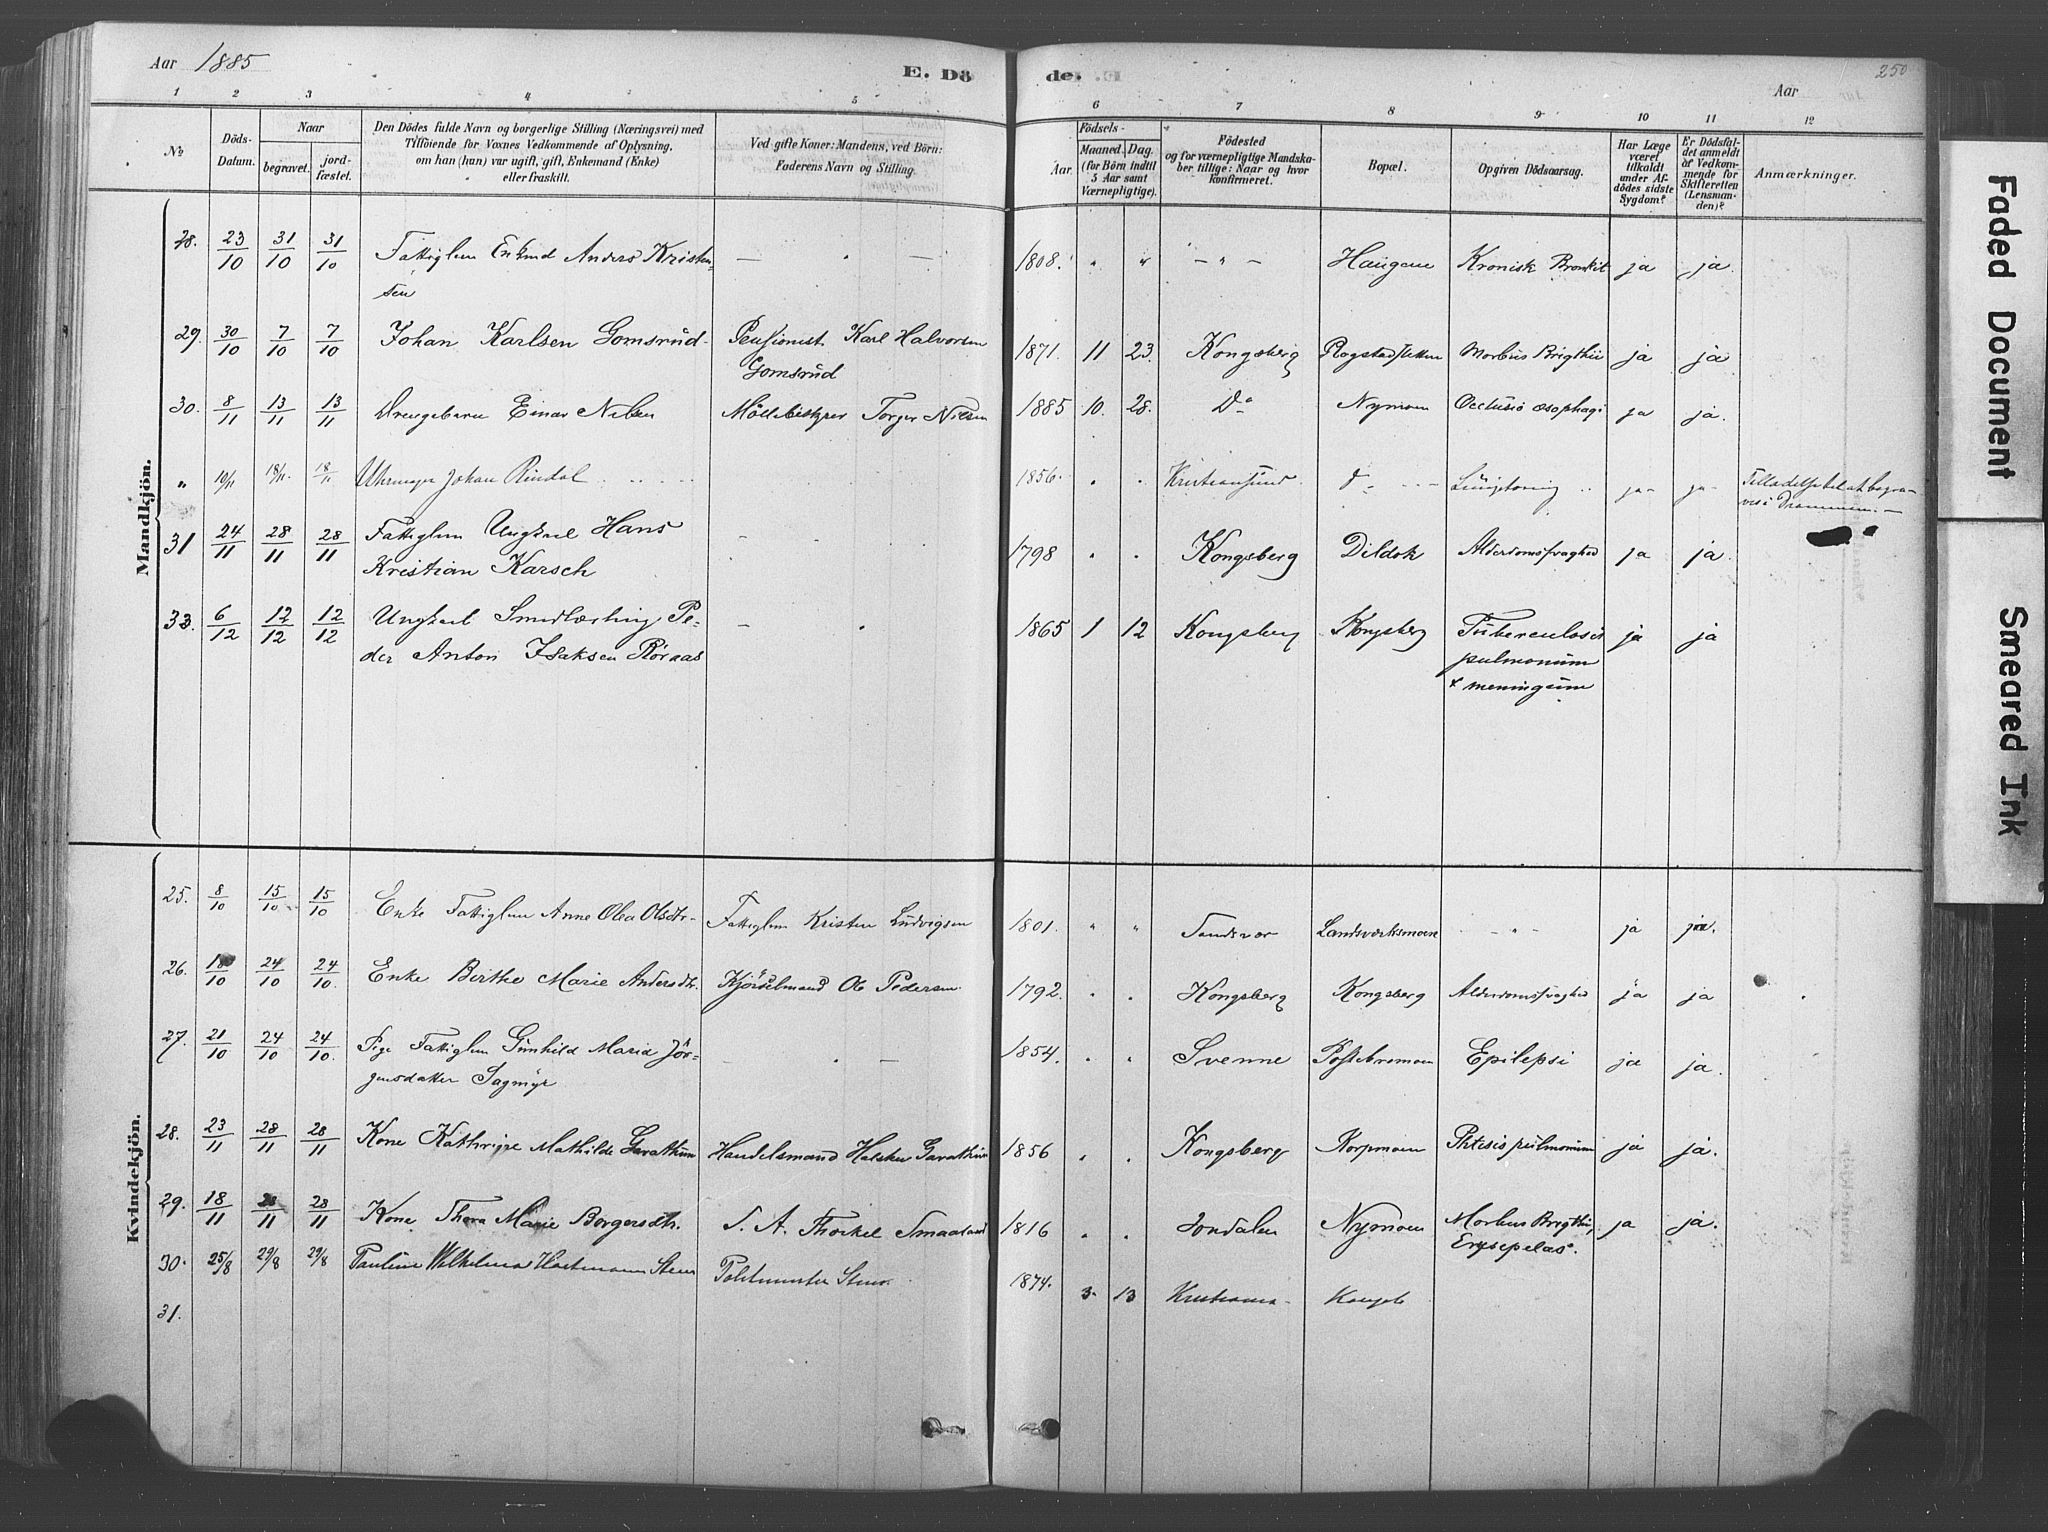 Aar 1885
E. Dö
de.
250
Aar
1 2 3 4 5 6 7 8 9 10 11 12
No
Döds-Datum.
Naar
begravet.
jord-fæstet.
Den Dödes fulde Navn og borgerlige Stilling (Næringsvei) med
Tilföiende for Voxnes Vedkommende af Oplysning.
om han (hun) var ugift, gift, Enkemand (Enke)
eller fraskilt.
Ved gifte Koner: Mandens, ved Börn:
Faderens Navn og Stilling.
Födsels-
Aar.
Maaned. Dag.
(for Börn indtil
5 Aar samt
Værnepligtige).
Födested
og for værnepligtige Mandska-
ber tillige: Naar og hvor
konfirmeret.
Bopæl.
Opgiven Dödsaarsag.
Har Læge
været
tilkaldt
under Af-
dödes sidste
Sygdom?
Er Dödsfal-
det anmeldt
af Vedkom-
mende for
Skifteretten
(Lensman-
den)?
Anmærkninger.
Mandkjön.
28. 23/10 31/10 31/10 Fattiglem Enkmd Anders Kristen- — " — 1808. " " — " — Haugene Kronisk Bronkit ja ja
sen
29. 30/10 7/10 7/10 Johan Karlsen Gomsrud Pensionist Karl Halvorsen 1871. 11 23. Kongsberg Morbus Brigthii ja ja
Gomsrud
30. 8/11 13/11 13/11 Drengebarn Einar Nilsen Torger Nilsen 1885 10. 28. Do Nymoen Occlusio æsophagi ja ja.
" 19/11 18/11. 18/11 Johan Rindal 1856. " " Kristiansund ja ja Tilladelse til at begra-
ves i Drammen. —
31 24/11 28/11 28/11 Fattiglem Ungkarl Hans — " 1798 " " Kongsberg Dildok Alderdomssvaghed ja ja
Kristian Karsch
33. 6/12 12/12 12/12 Ungkarl Smedlærling Pe- — " 1865 1 12 Kongsberg Kongsberg Tuberculosis ja ja
der Anton Isaksen Röraas pulmonum
& meningum
Kvindekjön.
25. 8/10 15/10 15/10 Enke Fattiglem Anne Olea Olsdtr. Fattiglem Kristen Ludvigsen 1801. " " Sandsvær Landsværksmoen — " — ja ja.
26. 18/10 24/10 24/10. Enke Berthe Marie Andersdtr. Kjörselmand Ole Pedersen 1792. " " Kongsberg Kongsberg Alderdomssvaghed ja ja
27. 21/10 24/10 24/10. Pige Fattiglem Gunhild Maria Jör- — " — 1854. " " Svenne Epilepsi ja ja.
gensdatter Sagmyr
28. 23/11 28/11 28/11 Kone Kathrine Mathilde Garathun Handelsmand Halsten Garathun 1856 " " Kongsberg Korpmoen Phtisis pulmonum ja ja.
29. 18/11 28/11 28/11 Kone Thora Marie Borgersdtr. S. A. Thorkel Smaaland 1816 " " Jondalen Nymoen Morbus Brigthii, ja ja.
Erysepelas.
30. 25/8 29/8 29/8 Pauline Wilhelmine Hartmann Steen Politmester Steen 1874. 3 13 Kristiania Kongsb
31.
Faded Document
Smeared Ink